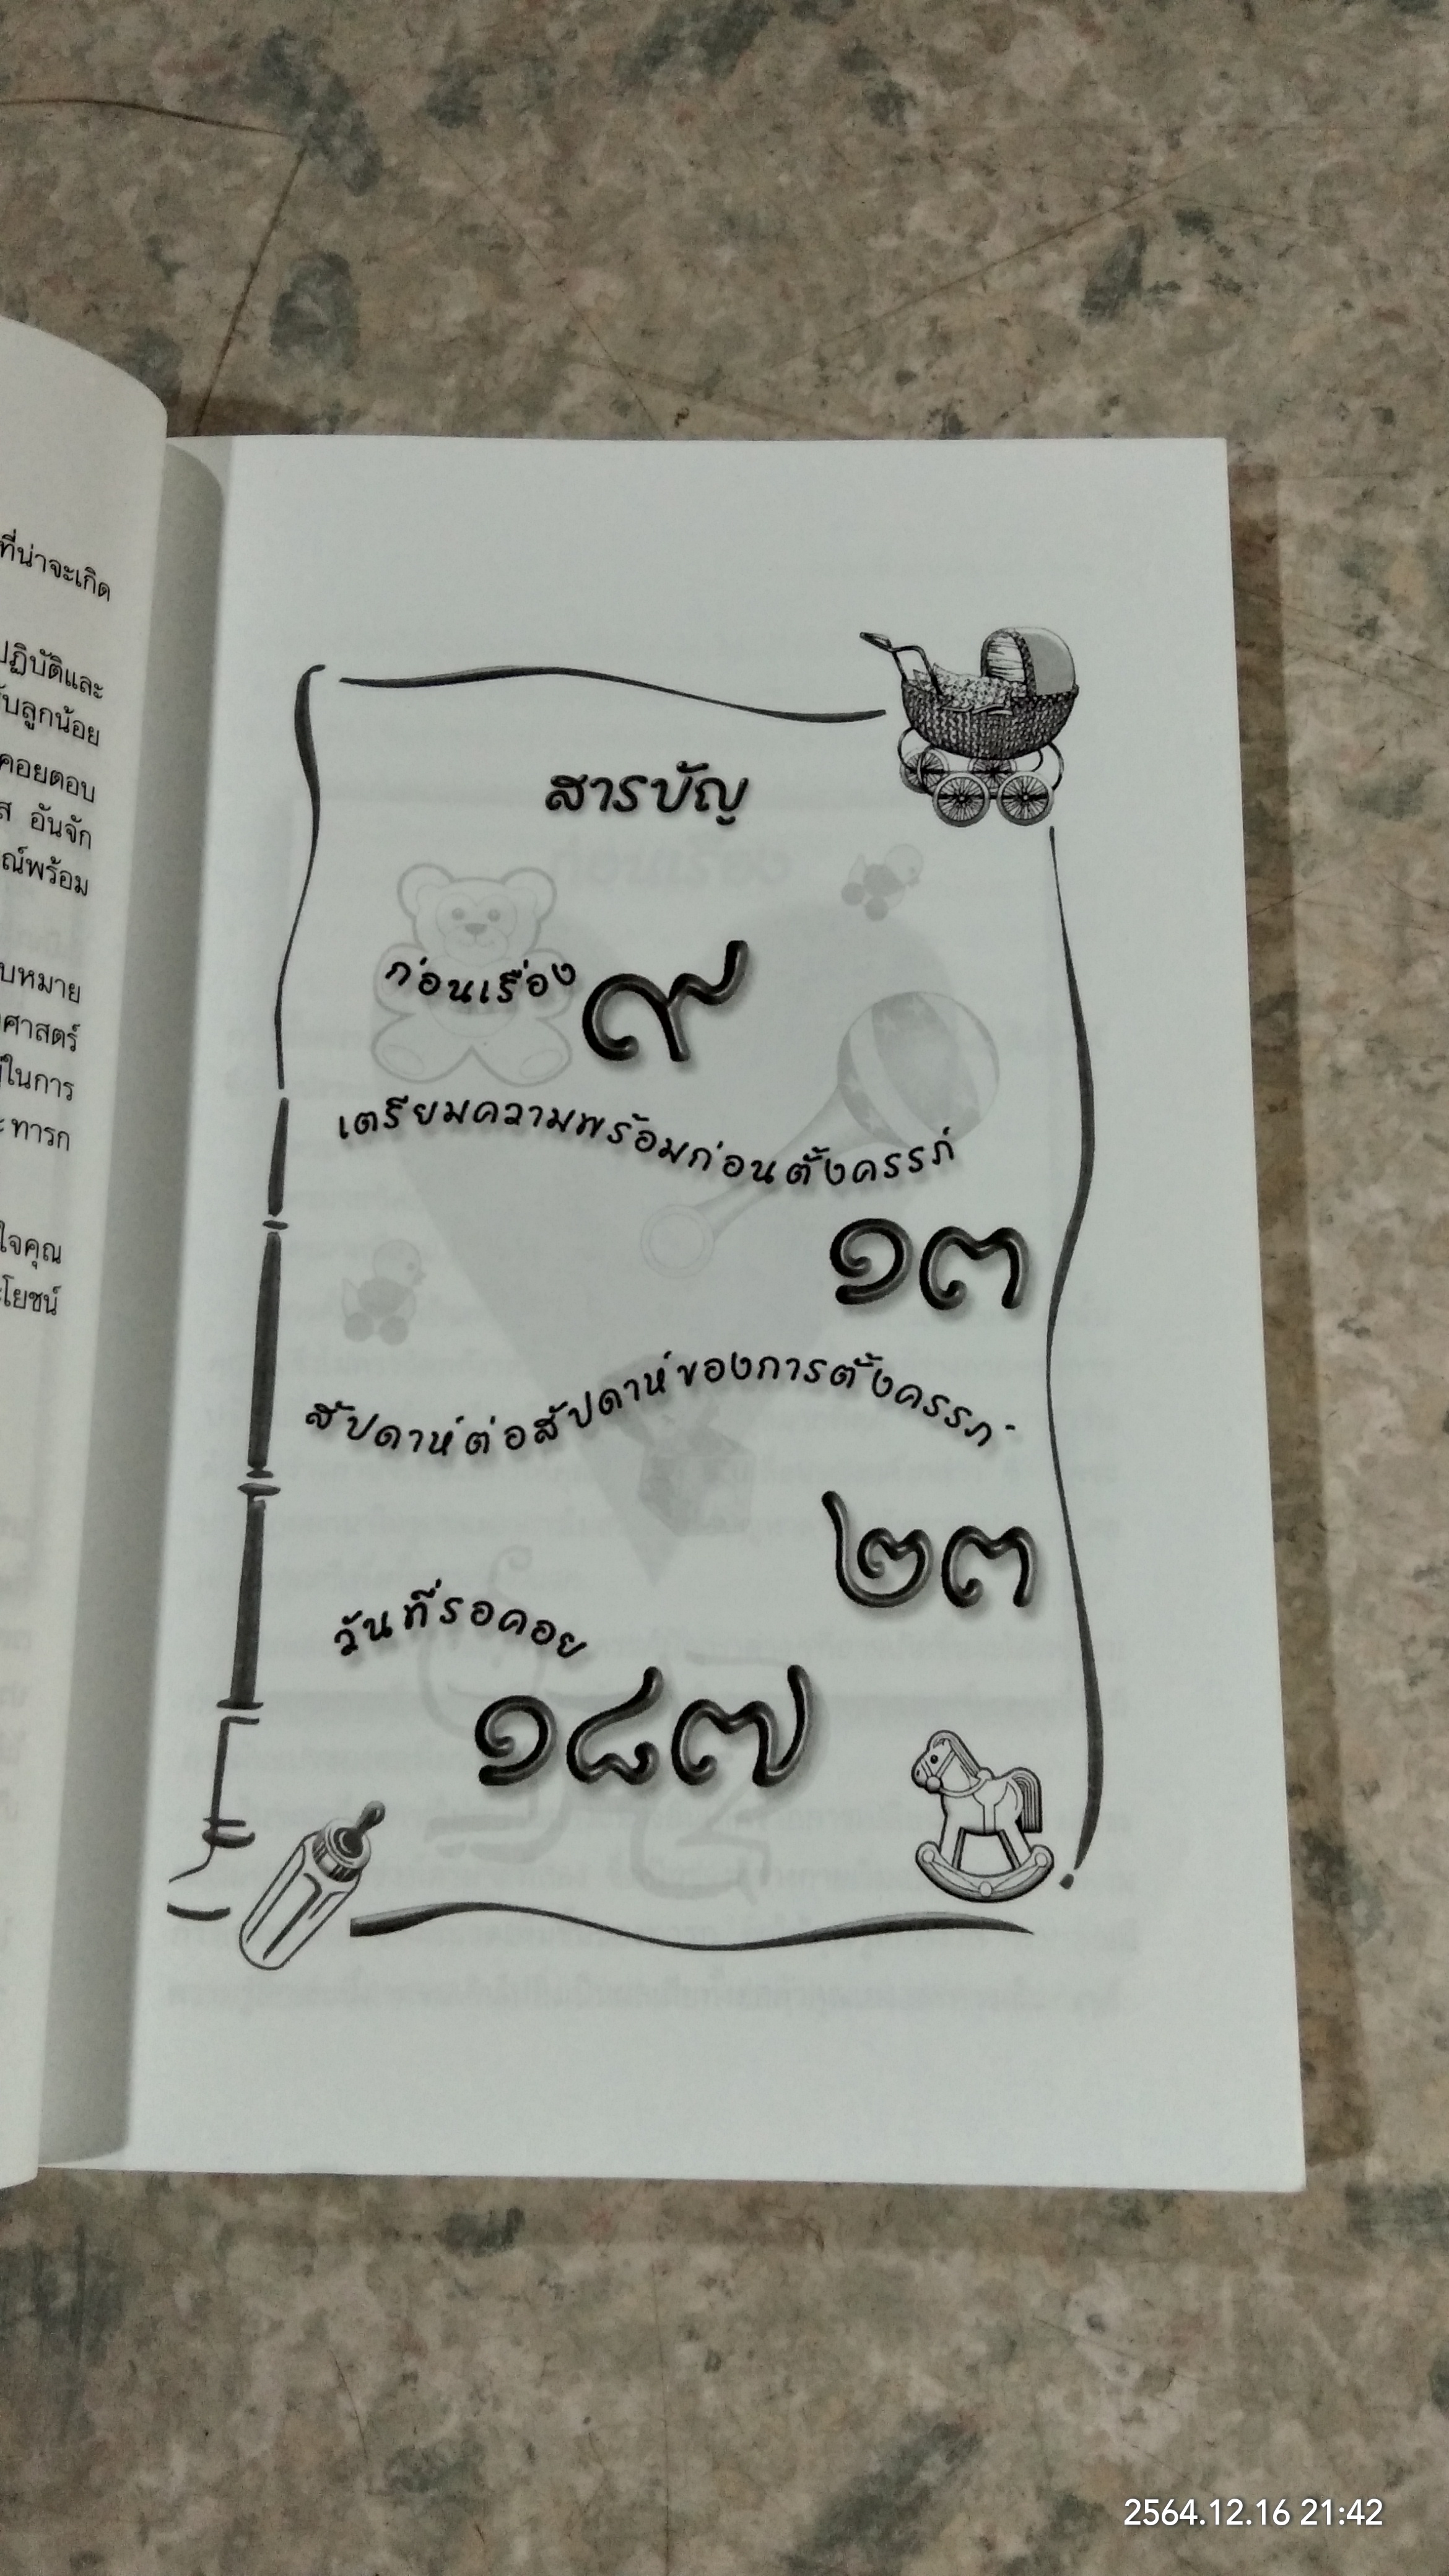 ที่น่าจะเกิด
ปฏิบัติและ
ลูกน้อย
คอยตอบ
อันจัก
พร้อม
หมาย
ศาสตร์
ในการ
ทารก
ใจคุณ
โยชน์
สารบัญ
ก่อนเรื่อง ๙
เตรียมความพร้อมก่อนตั้งครรภ์
๑๓
สัปดาห์ต่อสัปดาห์ของการตั้งครรภ์
๒๓
วันที่รอคอย
๑๘๗
2564.12.16 21:42